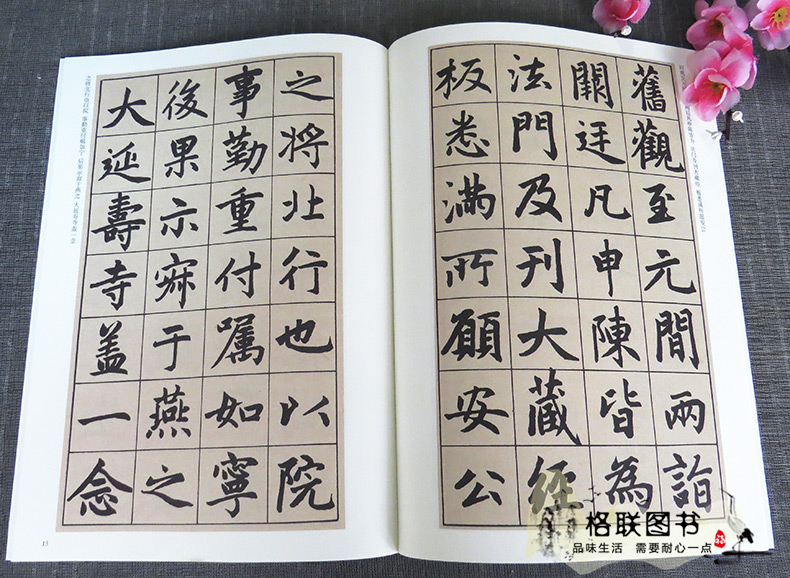 舊觀至元間兩詣
闕廷凡申陳皆為
法門及刊大藏經
板悉滿所願安公
之將北行也以院
事勤重付囑如寧
後果示寂于燕之
大延壽寺蓋一念
13
格联图书
品味生活 需要耐心一点